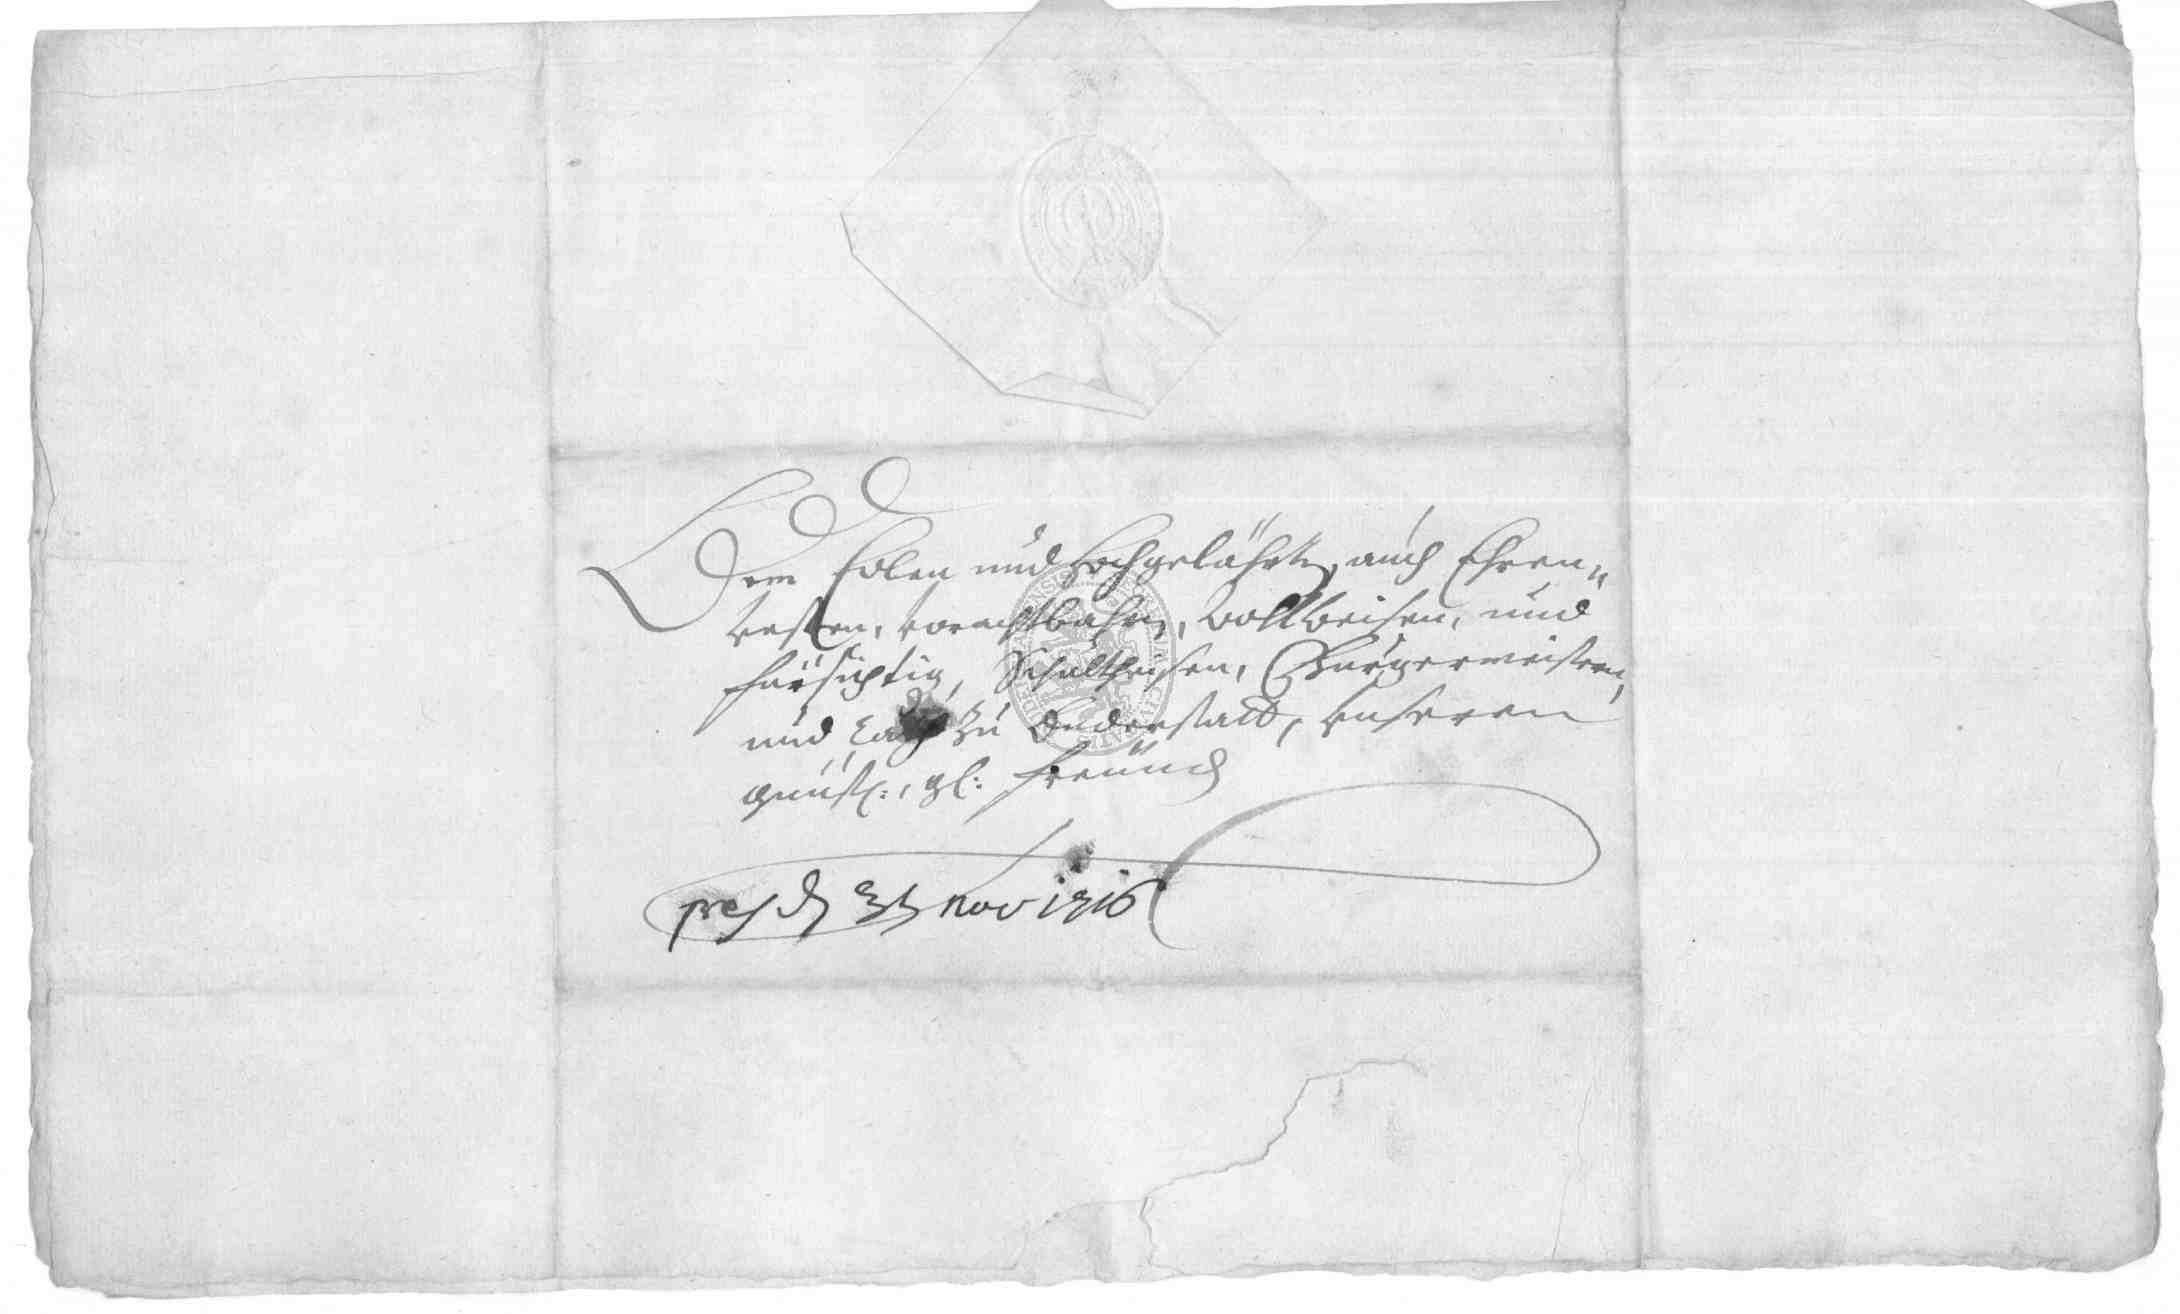 Dem Edlen und Hochgelährten, auch Ehren„
vesten, vorachtbahren, Wollweisen, und
fürsichtig, Schultheisen, Bürgermeistern,
und Rath zu Duderstatt, unseren
günstl:, gl: Freünd
pres d 3t nov 1716